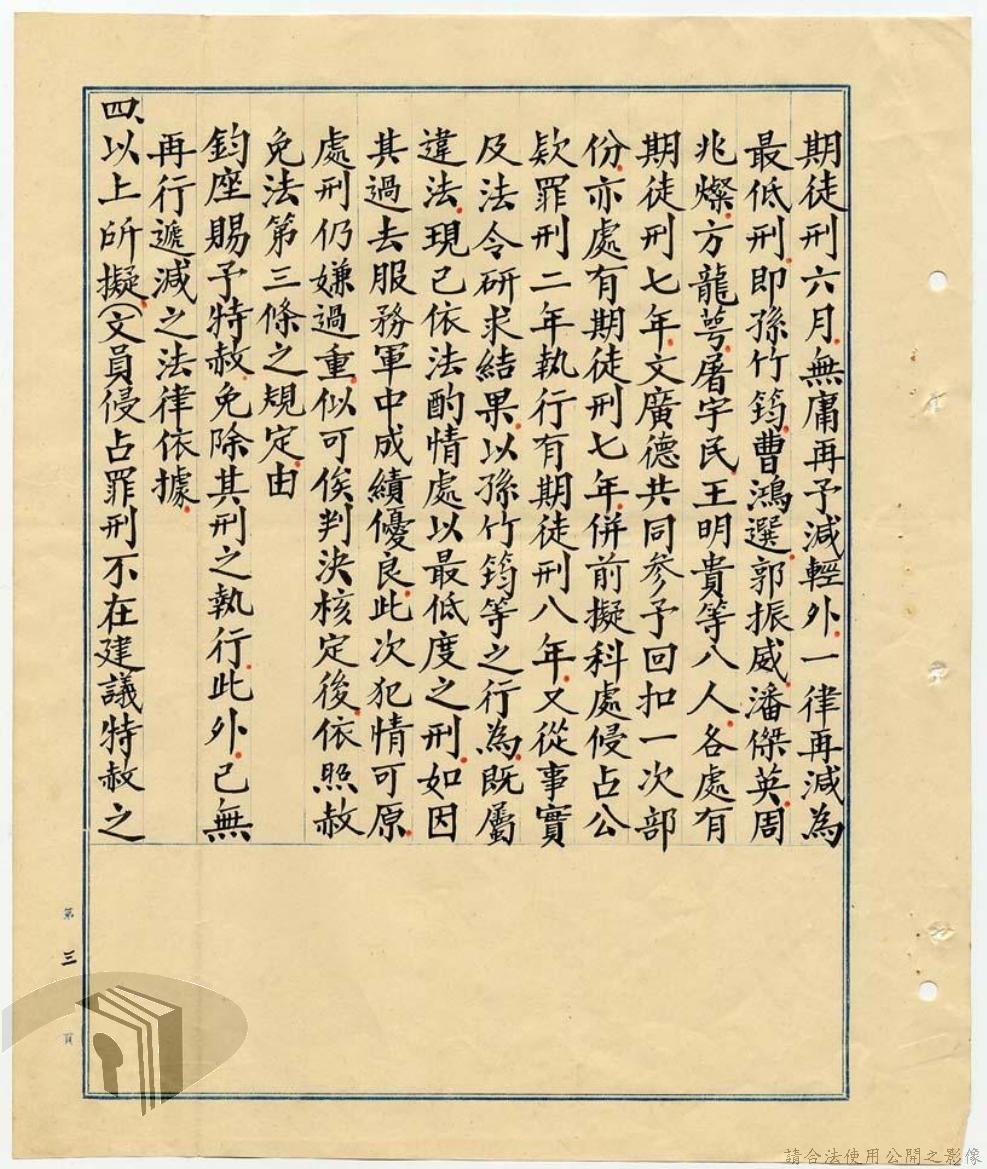 期徒刑六月無庸再予減輕外一律再減為
最低刑即孫竹筠曹鴻選郭振威潘傑英周
兆燦方龍萼屠宇民王明貴等八人各處有
期徒刑七年文廣德共同參予回扣一次部
份亦處有期徒刑七年併前擬科處侵占公
款罪刑二年執行有期徒刑八年又從事實
及法令研求結果以孫竹筠等之行為既屬
違法現已依法酌情處以最低度之刑如因
其過去服務軍中成績優良此次犯情可原
處刑仍嫌過重似可俟判決核定後依照赦
免法第三條之規定由
鈞座賜予特赦免除其刑之執行此外已無
再行遞減之法律依據
四、以上所擬(文員侵占罪刑不在建議特赦之
第三頁
請合法使用公開之影像